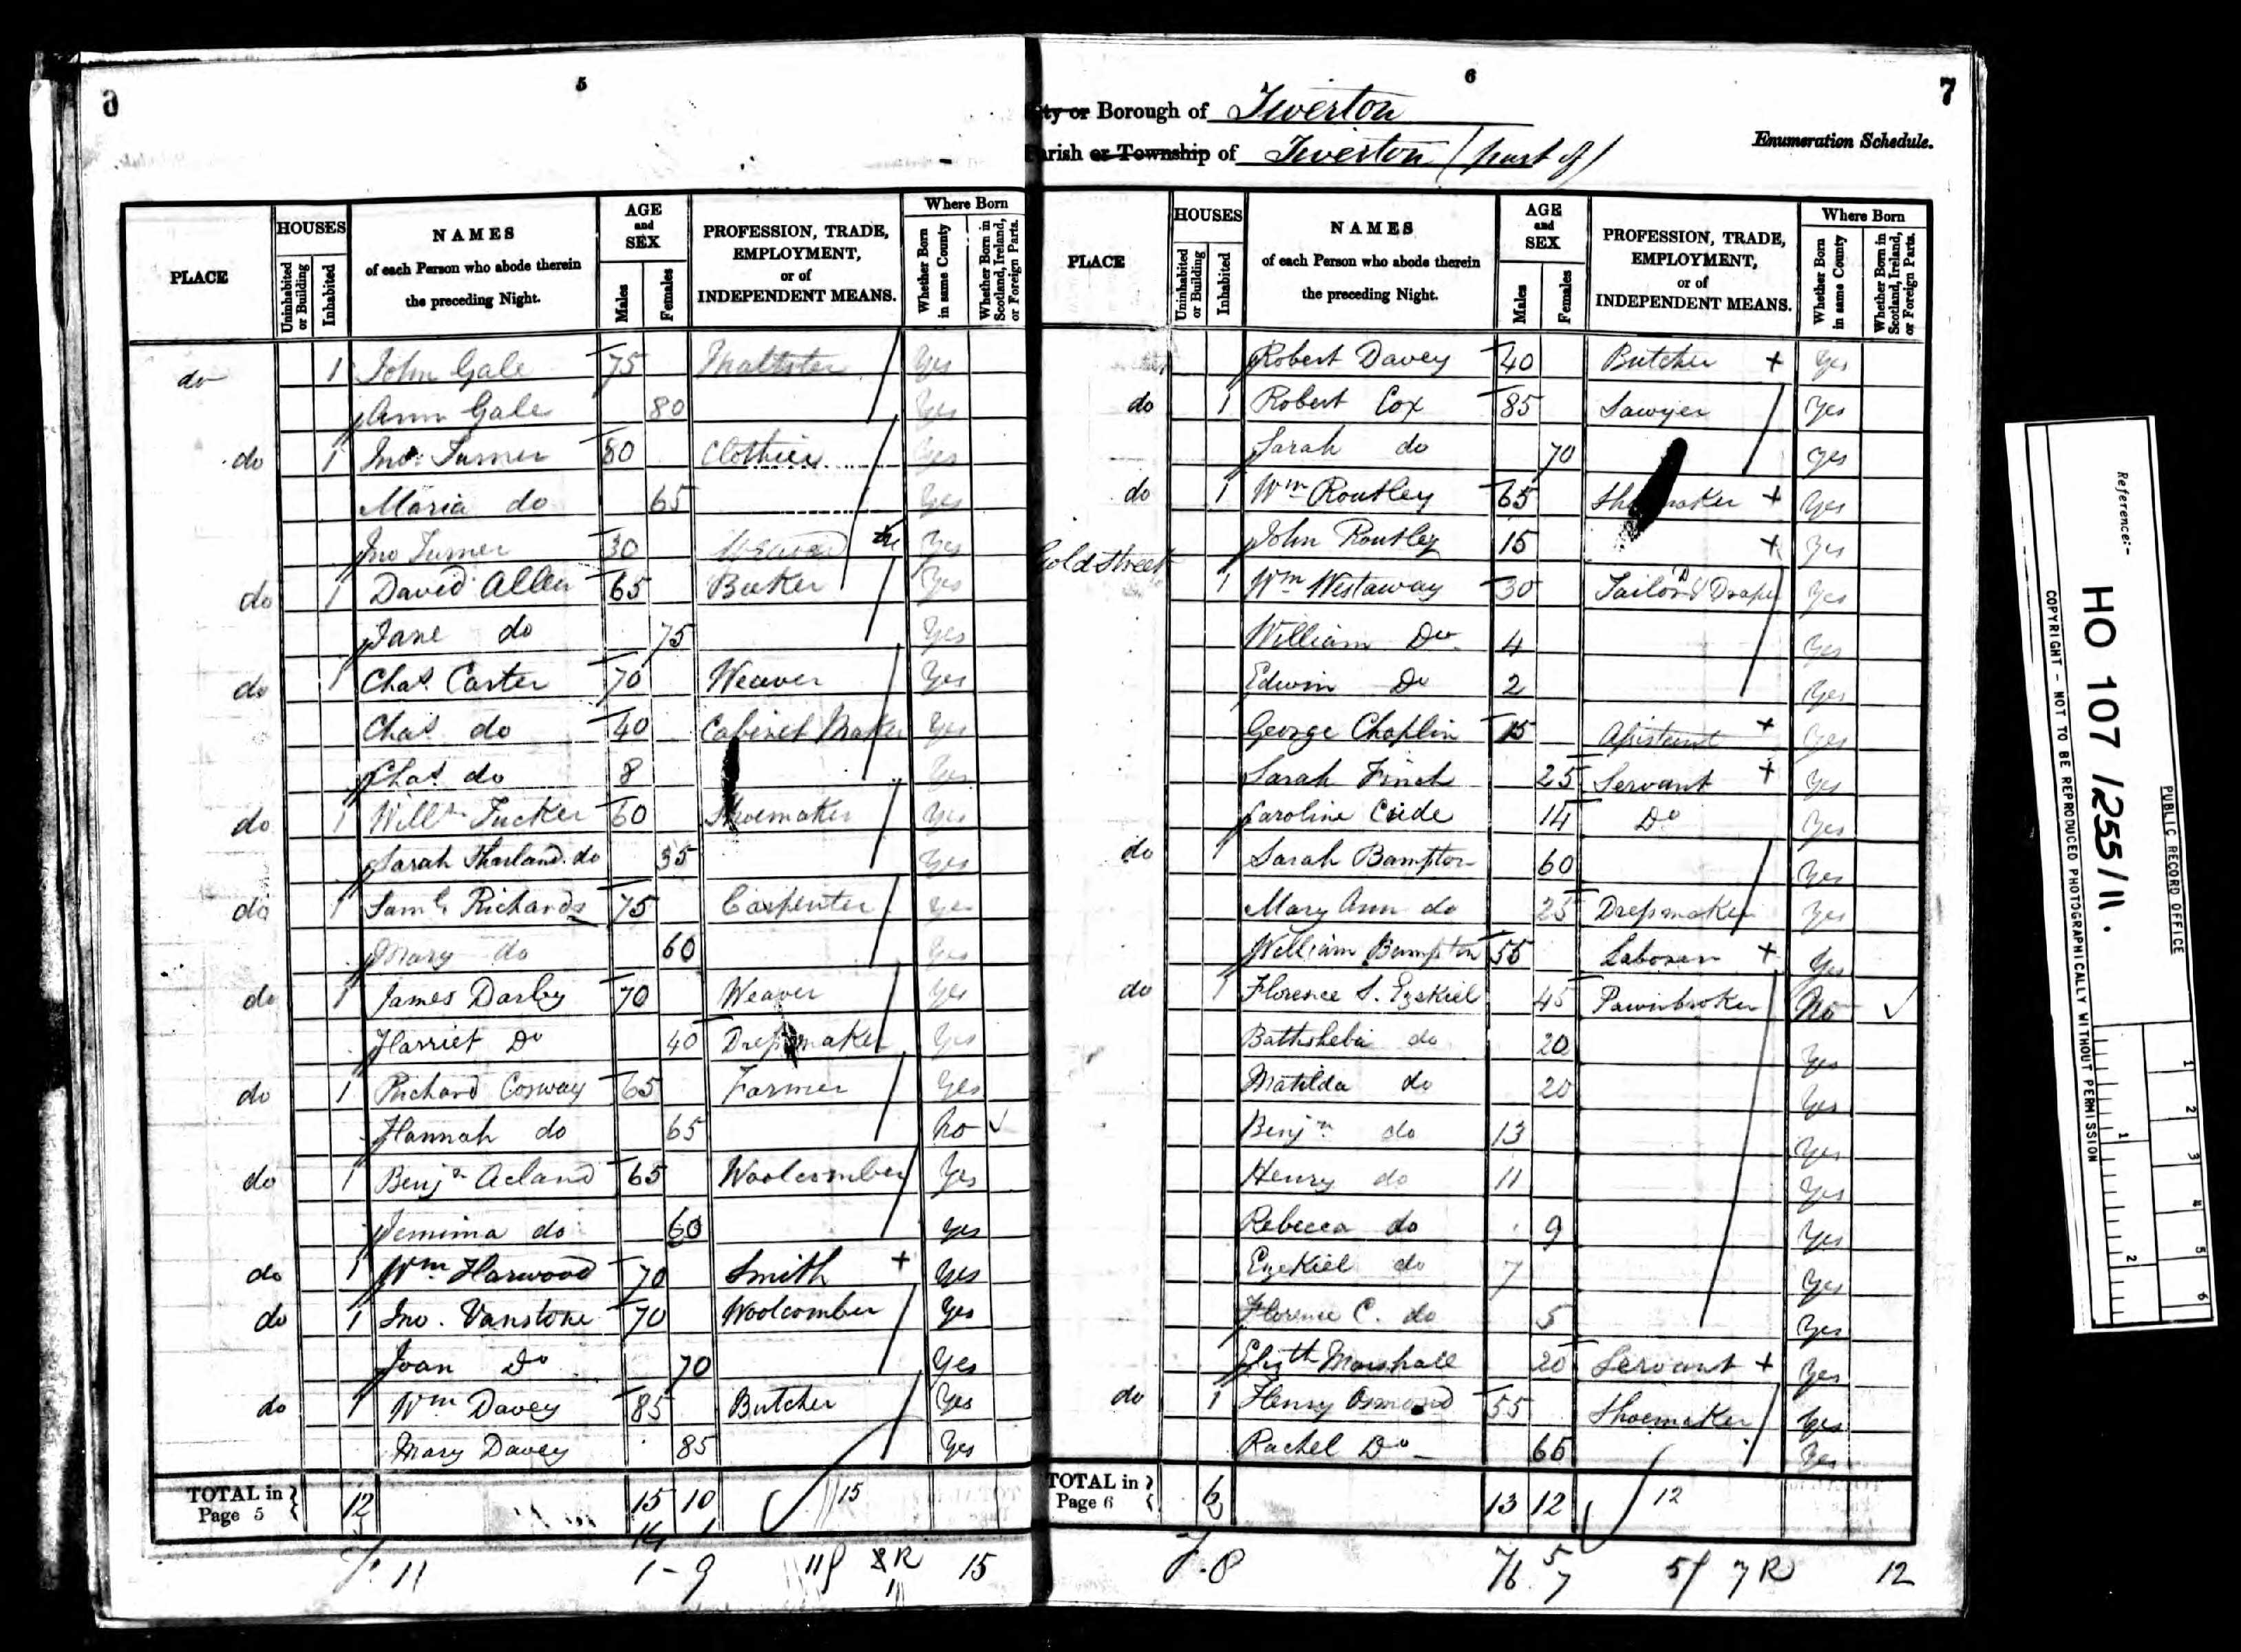 6
5
PLACE
HOUSES
Uninhabited or Building
Inhabited
NAMES
of each Person who abode therein
the preceding Night.
AGE
and
SEX
Males
Females
PROFESSION, TRADE,
EMPLOYMENT,
or of
INDEPENDENT MEANS.
Where Born
Whether Born in same County
Whether Born in Scotland, Ireland, or Foreign Parts.
do 1 John Gale 75 Maltster Yes
Ann Gale 80 Yes
do 1 Jno. Turner 80 Clothier Yes
Maria do 65 Yes
Jno Turner 30 Weaver Yes
do 1 David Allen 65 Yes
Jane do 75 Yes
do 1 Chas. Carter 70 Weaver Yes
Chas. do 40 Cabinet Maker Yes
Chas. do 8 Yes
do 1 Willm Tucker 60 Shoemaker Yes
Sarah do 35 Yes
do 1 Saml. Richards 75 Carpenter Yes
Mary do 60 Yes
do 1 James Darby 70 Weaver Yes
Harriet Do 40 Dressmaker Yes
do 1 Richard Cosway 65 Farmer Yes
Hannah do 65 No ✓
do 1 Benjn Acland 65 Woolcomber Yes
Jemima do 60 Yes
do 1 Wm Harwood 70 Smith + Yes
do 1 Jno. Vanstone 70 Woolcomber Yes
Joan Do 70 Yes
do 1 Wm Davey 85 Butcher Yes
Mary Davey 85 Yes
TOTAL in Page 5 12 15 10 15
11 1-9 15
6
7
City or Borough of Tiverton
Parish or Township of Tiverton (part of)
Enumeration Schedule.
PLACE
HOUSES
Uninhabited or Building
Inhabited
NAMES
of each Person who abode therein
the preceding Night.
AGE
and
SEX
Males
Females
PROFESSION, TRADE,
EMPLOYMENT,
or of
INDEPENDENT MEANS.
Where Born
Whether Born in same County
Whether Born in Scotland, Ireland, or Foreign Parts.
Robert Davey 40 Butcher + Yes
do 1 Robert Cox 85 Sawyer Yes
Sarah do 70 Yes
do 1 Wm Routley 65 Shoemaker + Yes
John Routley 15 + Yes
Gold Street 1 Wm Westaway 30 Tailor & Draper Yes
William Do 4 Yes
Edwin Do 2 Yes
George Chaplin 15 Assistant + Yes
Sarah Finch 25 Servant + Yes
Caroline 14 Do Yes
do 1 Sarah Bampton 60 Yes
Mary Ann do 25 Dressmaker Yes
William Bampton 55 Laborer + Yes
do 1 Florence S. Ezekiel 45 Pawnbroker No ✓
Bathsheba do 20 Yes
Matilda do 20 Yes
Benjn do 13 Yes
Henry do 11 Yes
Rebecca do 9 Yes
Ezekiel do 7 Yes
Florence C. do 5 Yes
Elizth Marshall 20 Servant + Yes
do 1 Henry Osmond 55 Shoemaker Yes
Rachel Do 65 Yes
TOTAL in Page 6 6 13 12 12
8 5 7 7R 12
Reference:-
HO 107/1255/11.
PUBLIC RECORD OFFICE
COPYRIGHT - NOT TO BE REPRODUCED PHOTOGRAPHICALLY WITHOUT PERMISSION
1 2 3 4 5 6
1 2